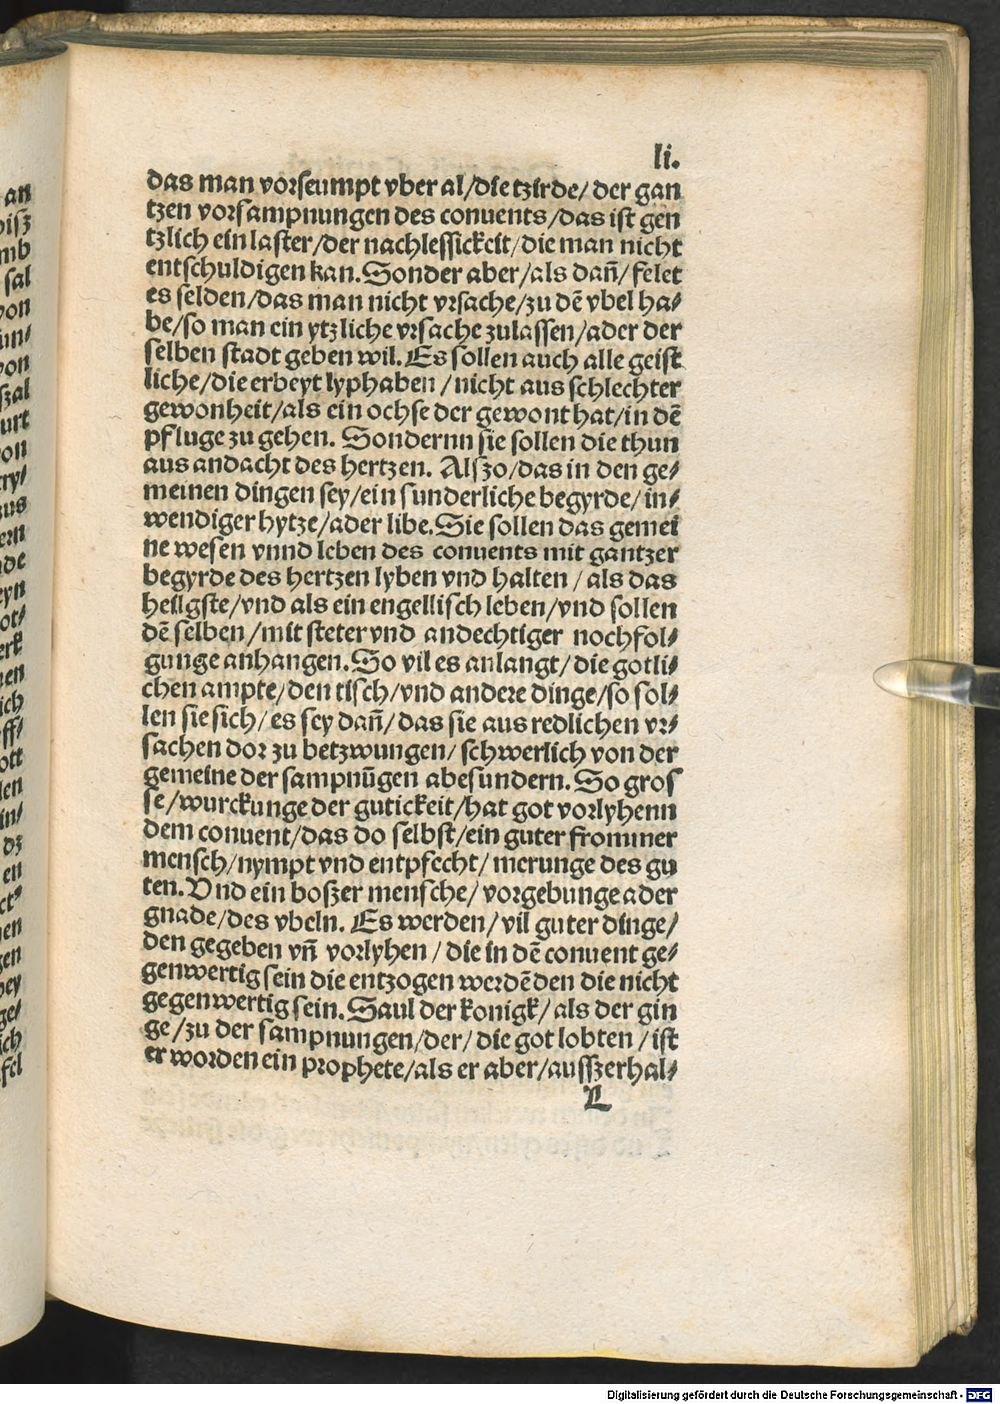 li.
das man vorseumpt vber al/die tzirde/ der gan
tzen vorsampnungen des conuents/das ist gen
tzlich ein laster/der nachlessickeit/die man nicht
entschuldigen kan. Sonder aber/als dañ/ felet
es selden/das man nicht vrsache/zu dē vbel ha⸗
be/so man ein ytzliche vrsache zulassen/ader der
selben stadt geben wil. Es sollen auch alle geist
liche/die erbeyt lyphaben/nicht aus schlechter
gewonheit/als ein ochse der gewont hat/in dē
pfluge zu gehen. Sondernn sie sollen die thun
aus andacht des hertzen. Alszo/das in den ge⸗
meinen dingen sey/ein sunderliche begyrde/ in⸗
wendiger hytze/ader libe. Sie sollen das gemei
ne wesen vnnd leben des conuents mit gantzer
begyrde des hertzen lyben vnd halten/als das
heilgste/vnd als ein engellisch leben/vnd sollen
dē selben/mit steter vnd andechtiger nochfol⸗
gunge anhangen. So vil es anlangt/die gotli⸗
chen ampte/den tisch/vnd andere dinge/so sol⸗
len sie sich/es sey dañ/das sie aus redlichen vr⸗
sachen dor zu betzwungen/schwerlich von der
gemeine der sampnūgen abesundern. So gros
se/wurckunge der gutickeit/hat got vorlyhenn
dem conuent/das do selbst/ein guter frommer
mensch/nympt vnd entpfecht/merunge des gu
ten. Vnd ein boszer mensche/vorgebunge ader
gnade/des vbeln. Es werden/vil guter dinge/
den gegeben vñ vorlyhen/die in dē conuent ge⸗
genwertig sein die entzogen werdē den die nicht
gegenwertig sein. Saul der konigk/als der gin
ge/zu der sampnungen/der/die got lobten/ist
er worden ein prophete/als er aber/ausszerhal⸗
L
an
mb
sal
von
von
szal
urt
von
ern
ade
eyn
erk
nen
ich
ott
len
in/
dz
en
nen
gen
ney
ge/
ich
fel
Digitalisierung gefördert durch die Deutsche Forschungsgemeinschaft - DFG